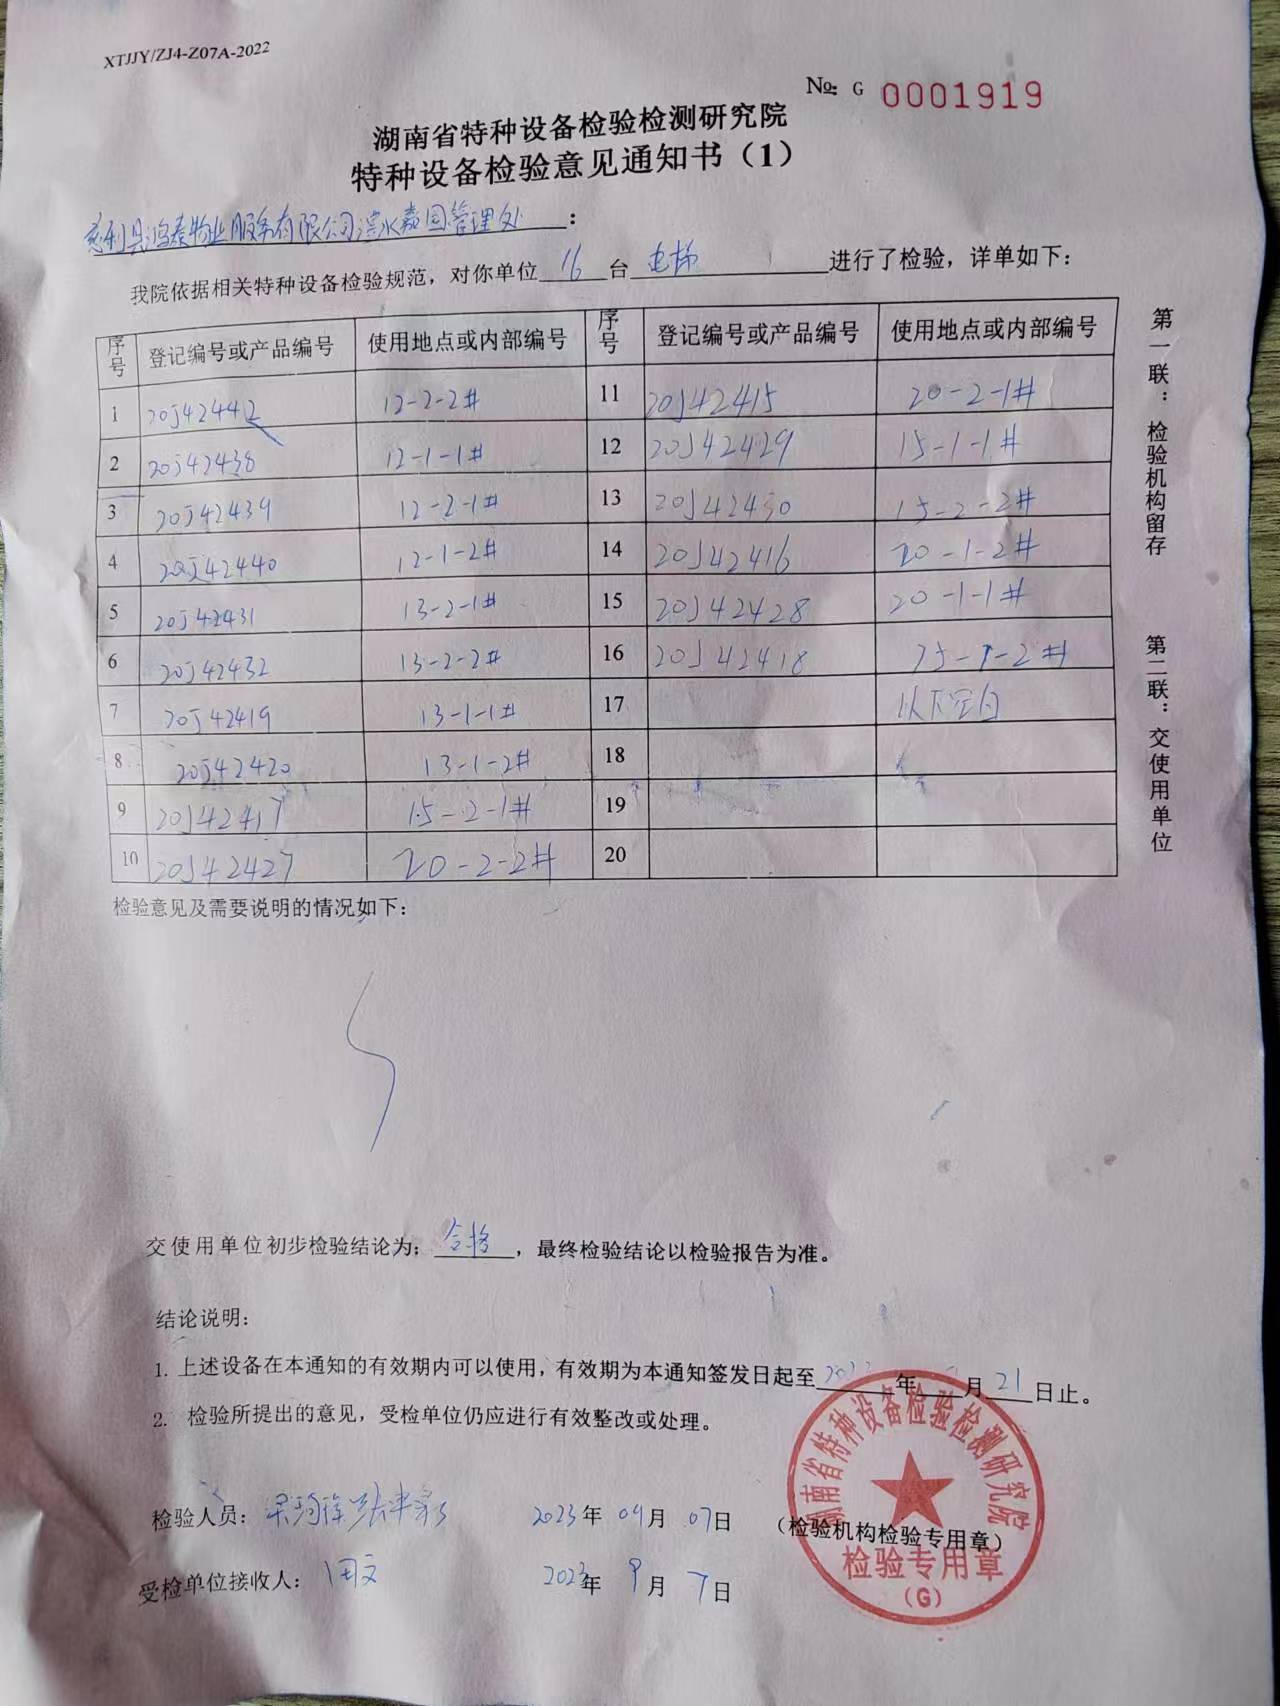 XTJJY/ZJ4-Z07A-2022
№: G 0001919
湖南省特种设备检验检测研究院
特种设备检验意见通知书（1）
慈利县鸿泰物业服务有限公司滨水嘉园管理处：
我院依据相关特种设备检验规范，对你单位 16 台 电梯 进行了检验，详单如下：
序号 登记编号或产品编号 使用地点或内部编号 序号 登记编号或产品编号 使用地点或内部编号
1 20J42442 12-2-2# 11 20J42415 20-2-1#
2 20J42438 12-1-1# 12 20J42429 15-1-1#
3 20J42439 12-2-1# 13 20J42430 15-2-2#
4 20J42440 12-1-2# 14 20J42416 20-1-2#
5 20J42431 13-2-1# 15 20J42428 20-1-1#
6 20J42432 13-2-2# 16 20J42418 15-1-2#
7 20J42419 13-1-1# 17 以下空白
8 20J42420 13-1-2# 18
9 20J42417 15-2-1# 19
10 20J42427 20-2-2# 20
第一联：检验机构留存
第二联：交使用单位
检验意见及需要说明的情况如下：
交使用单位初步检验结论为：合格，最终检验结论以检验报告为准。
结论说明：
1. 上述设备在本通知的有效期内可以使用，有效期为本通知签发日起至 年 月 21 日止。
2. 检验所提出的意见，受检单位仍应进行有效整改或处理。
检验人员： 2023年 09月 07日 （检验机构检验专用章）
受检单位接收人：周文 2023年 9月 7日
湖南省特种设备检验检测研究院
检验专用章
（G）